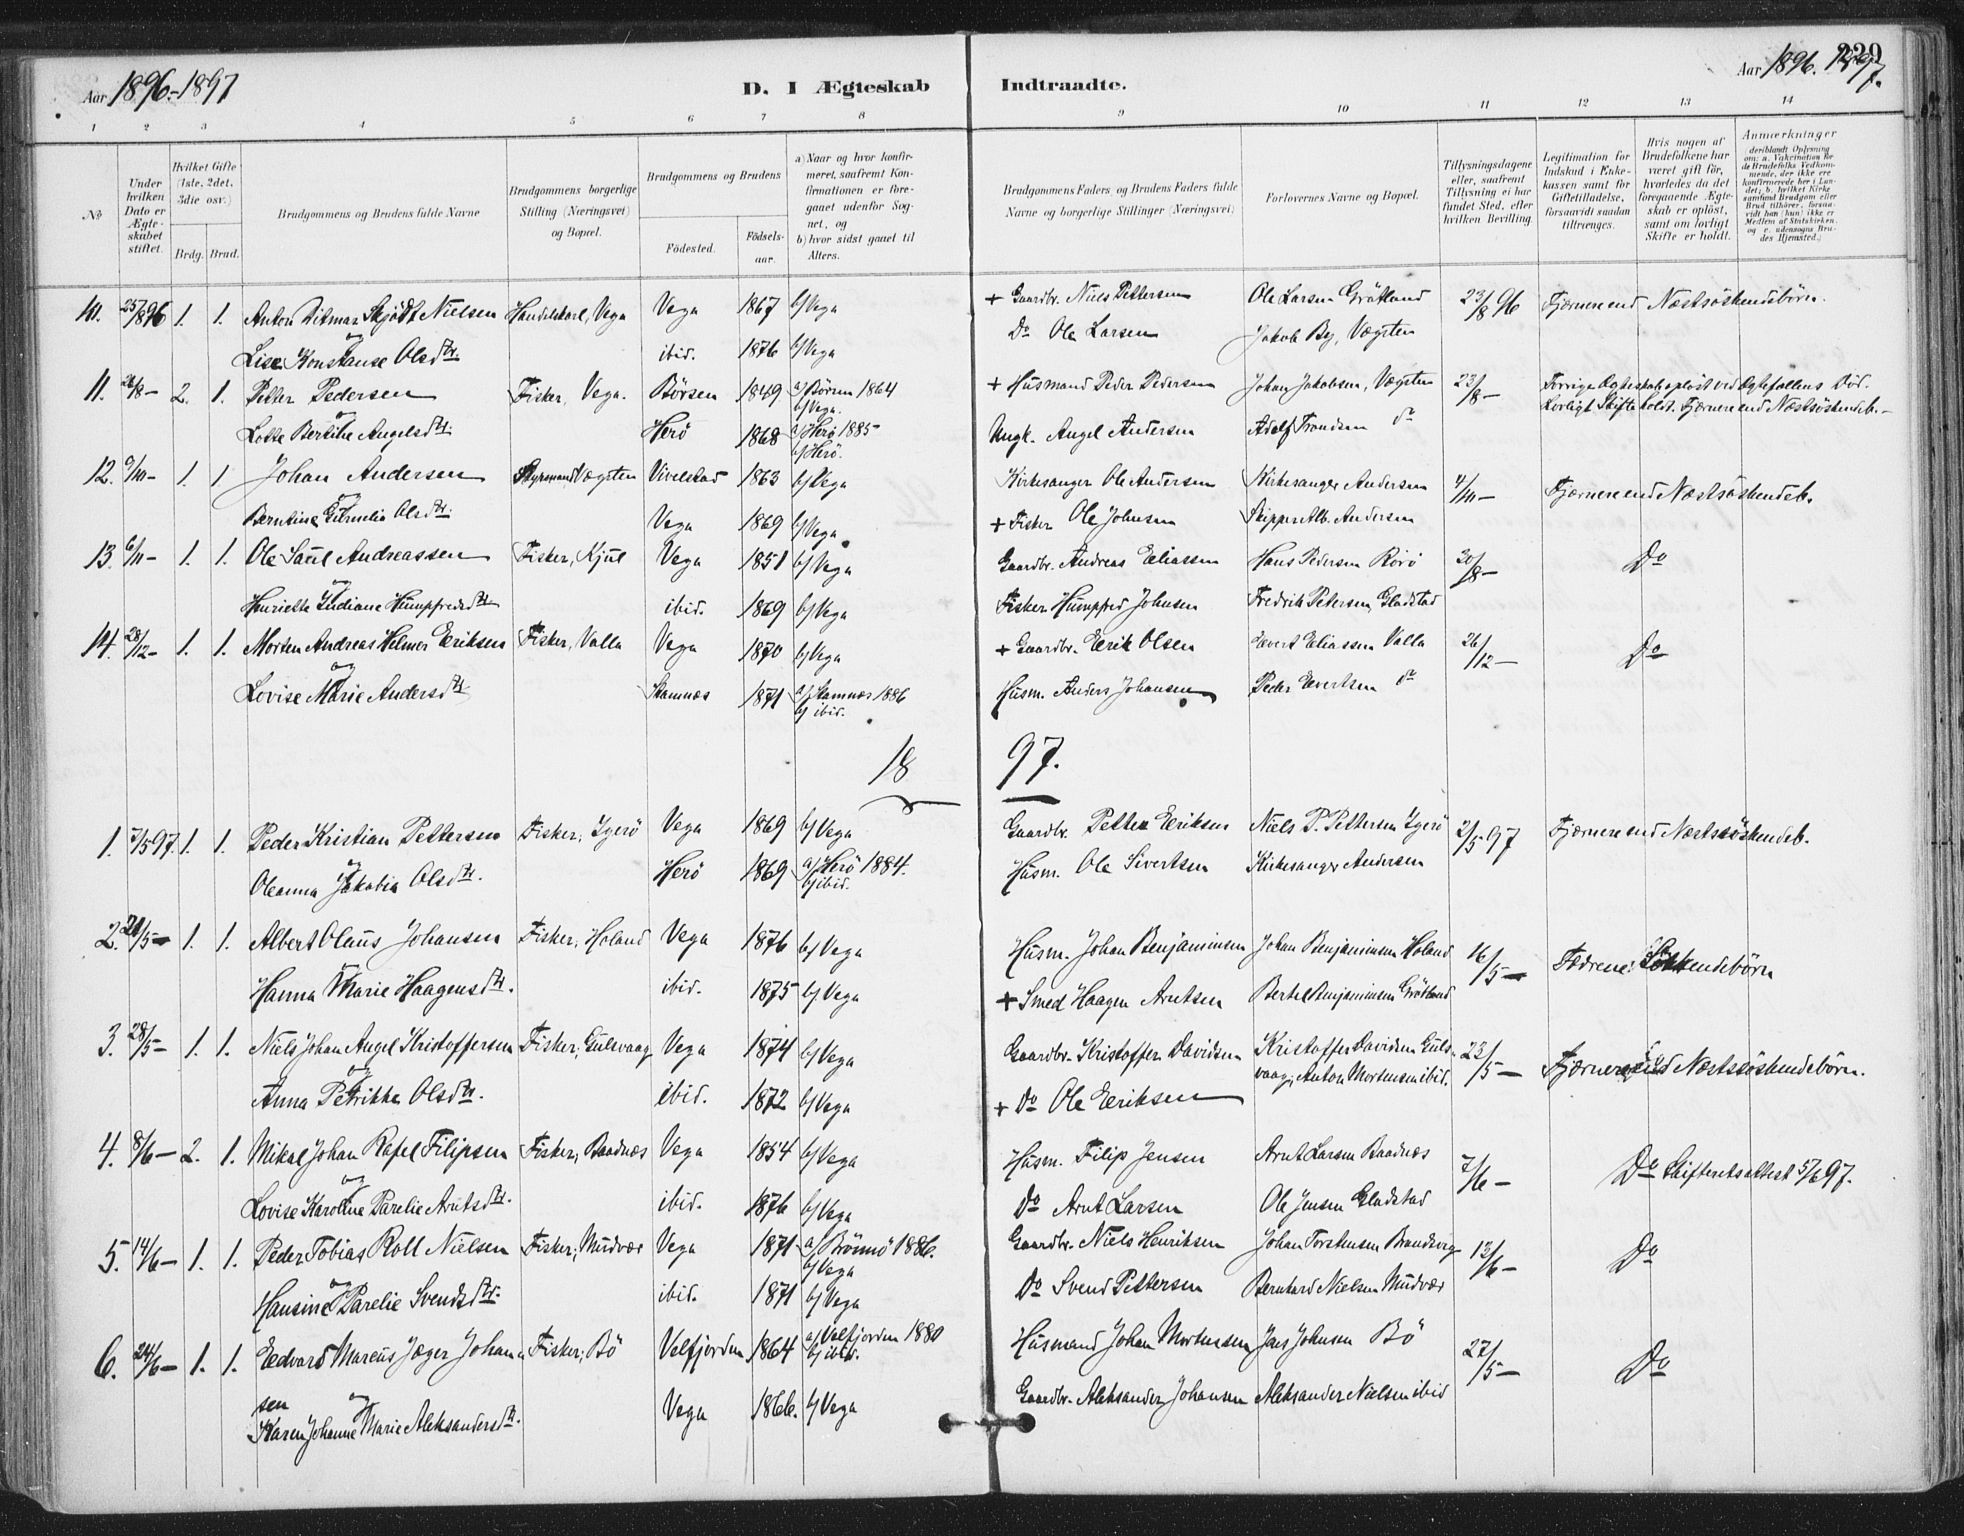 Aar 1896-1897
D. I Ægteskab Indtraadte.
229
Aar 1896. 1897.
1 2 3 4 5 6 7 8 9 10 11 12 13 14
No
Under hvilken Dato er Ægteskabet stiftet.
Hvilket Gifte (1ste, 2det, 3die osv.)
Brdg. Brud.
Brudgommens og Brudens fulde Navne
Brudgommens borgerlige Stilling (Næringsvei) og Bopæl.
Brudgommens og Brudens
Födested.
Födselsaar.
a) Naar og hvor konfirmeret, saafremt Konfirmationen er foregaaet udenfor Sognet, og
b) hvor sidst gaaet til Alters.
Brudgommens Faders og Brudens Faders fulde Navne og borgerlige Stillinger (Næringsvei)
Forlovernes Navne og Bopæl.
Tillysningsdagene eller, saafremt Tillysning ei har fundet Sted, efter hvilken Bevilling.
Legitimation for Indskud i Enkekassen samt for Giftetilladelse, forsaavidt saadan tiltrænges.
Hvis nogen af Brudefolkene har været gift før, hvorledes da det foregaaende Ægteskab er oplöst, samt om lovligt Skifte er holdt.
Anmærkninger
deriblandt Oplysning om: a. Vakcination for de Brudefolks Vedkommende, der ikke ere konfirmerede her i Landet; b. hvilket Kirkesamfund Brudgom eller Brud tilhörer, forsaavidt han (hun) ikke er Medlem af Statskirken, og c. udensogns Brudes Hjemsted.)
10. 25/8 96 1. 1. Anton Ditmar Skjödt Nielsen Handelskarl, Vega Vega 1867 b/Vega + Gaardbr. Niels Pettersen Ole Larsen Grötland 23/8 96 Fjernere end Næstsöskendebörn.
og
Lise Konstanse Olsdtr. ibid. 1876 b/Vega Do Ole Larsen Jakob By, Vægsten
11. 26/8 - 2. 1. Petter Pedersen Fisker, Vega. Börsen 1849 a/Börsen 1864 b/Vega. + Husmand Peder Pedersen Johan Jakobsen, Vægsten 23/8 - Forrige Ægteskab oplöst ved Ægtefællens Död.
og Lovligt Skifte holdt. Fjernere end Næstsöskendeb.
Lotte Bertine Angelsdtr. Herö 1868 a/Herö 1885 b/Herö. Ungk. Angel Andersen Adolf Trondsen do
12. 9/10 - 1. 1 Johan Andersen Styrmand Vægsten Vivelstad 1863 b/Vega Kirkesanger Ole Andersen Kirkesanger Andersen 4/10 - Fjernere end Næstsöskendeb.
og
Berntine Cornelia Olsdtr. Vega 1869 b/Vega + Fisker Ole Johnsen Skipper Alb. Andersen
13. 6/11 - 1. 1. Ole Saul Andreassen Fisker, Kjul Vega 1851 b/Vega Gaardbr. Andreas Eliassen Hans Pedersen Rörö 30/8 - Do
og
Henriette Indiane Humpfredsdtr. ibid. 1869 b/Vega Fisker Humpfred Johnsen Fredrik Petersen Gladstad
14. 28/12 - 1. 1. Morten Andreas Helmer Eriksen Fisker, Valla Vega 1870 b/Vega + Gaardbr. Erik Olsen Evert Eliassen Valla 26/12 - Do
og
Lovise Marie Andersdtr. Stamnes 1871 a/Stamnes 1886 b/ ibid. Husm. Anders Johansen Peder Evertsen do
18 97.
1. 7/5 97. 1. 1. Peder Kristian Pettersen Fisker, Igerö Vega 1869 b/Vega Gaardbr. Petter Eriksen Niels P. Pettersen Igerö 2/5 97 Fjernere end Næstsöskendeb.
og
Oleanna Jakobia Olsdtr. Herö 1869 a/Herö 1884. b/ibid. Husm. Ole Sivertsen Kirkesanger Andersen
2. 21/5 - 1. 1. Albert Olaus Johansen Fisker, Holand Vega 1876 b/Vega Husm. Johan Benjaminsen Johan Benjaminsen Holand 16/5 - Fædrene Söskendebörn
og
Hanna Marie Haagensdtr. ibid. 1875 b/Vega + Smed Haagen Arntsen Bertel Benjaminsen Grötland
3. 28/5 - 1. 1. Niels Johan Angel Kristoffersen Fisker, Gulsvaag Vega 1874 b/Vega Gaardbr. Kristoffer Davidsen Kristoffer Davidsen Gulsvaag; Anton Mortensen ibid. 23/5 - Fjernere end Næstsöskendebörn.
og
Anna Petrikke Olsdtr. ibid. 1872 b/Vega + Do Ole Eriksen
4. 8/6 - 2. 1. Mikal Johan Rafel Filipsen Fisker, Baadnæs Vega 1854 b/Vega Husm. Filip Jensen Arnt Larsen Baadnæs 7/6 - Do Skifteretsattest 5/6 97.
og
Lovise Karoline Parelie Arntsdtr. ibid. 1876 b/Vega Do Arnt Larsen Ole Jensen Gladstad
5. 14/6 - 1. 1. Peder Tobias Roll Nielsen Fisker, Mudvær Vega 1871 a/Brönnö 1886. b/Vega Gaardbr. Niels Henriksen Johan Torstensen Brandsvig 13/6 - Do
og
Hansine Parelie Svendsdtr. ibid. 1871 b/Vega Do Svend Pettersen Bernhard Nielsen Mudvær
6. 24/6 - 1. 1. Edvard Marcus Jæger Johan- Fisker, Bö Velfjorden 1864 a/Velfjorden 1880 b/ibid. Husmand Johan Mortensen Jens Johnsen Bö 27/5 - Do
sen
og
Karen Johanne Marie Aleksandersdtr. Vega 1866. b/Vega Gaardbr. Aleksander Johansen Aleksander Nielsen ibid